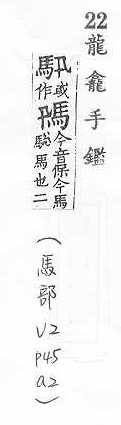 22龍龕手鑑
或作
今音保今馬
驄馬也二
(馬部
V2
P45
a2)